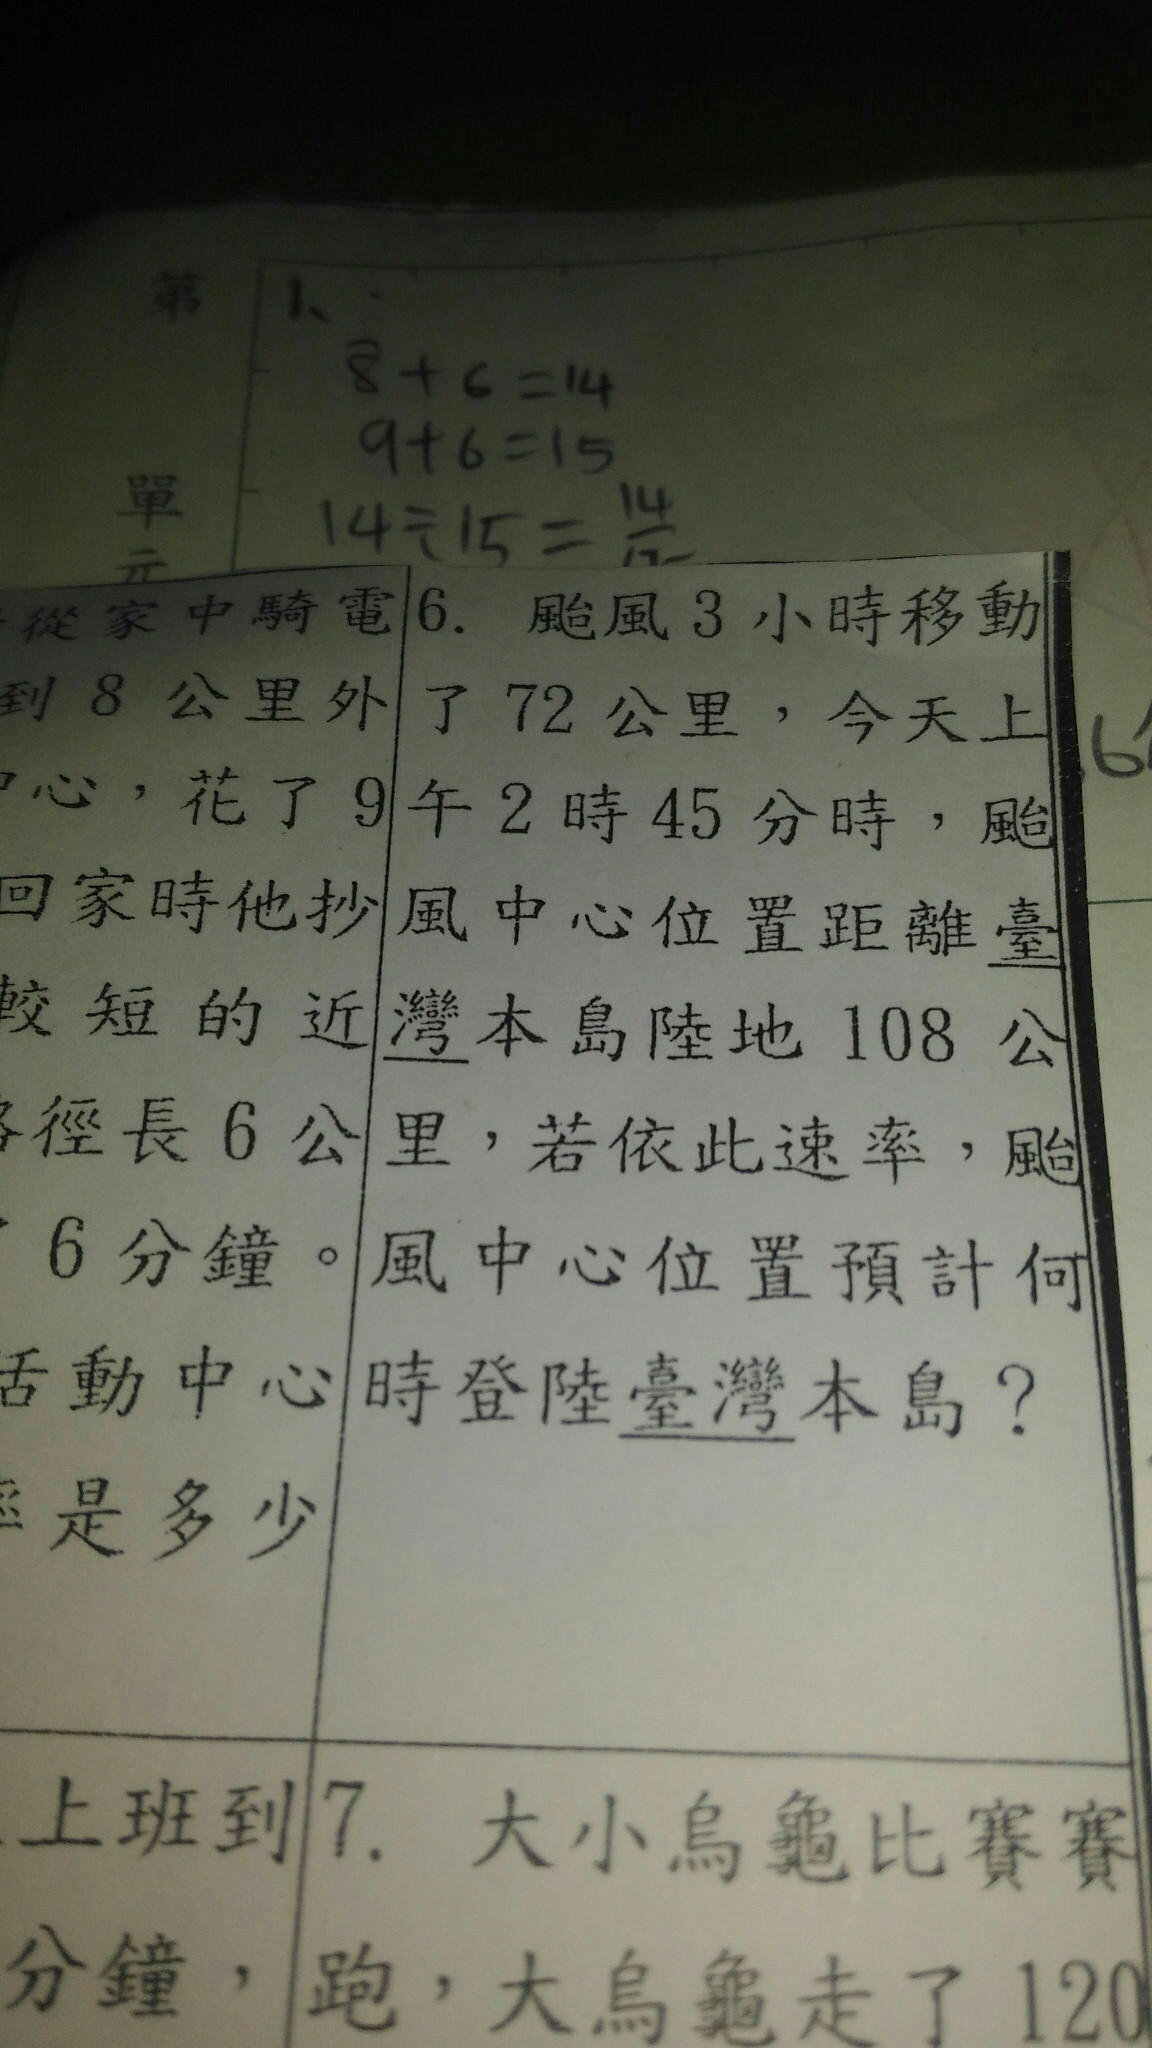 第
單
元
1、
8+6=14
9+6=15
14÷15=14
從家中騎電
到 8 公里外
心，花了 9
回家時他抄
較短的近
徑長 6 公
6 分鐘。
活動中心
是多少
6. 颱風 3 小時移動
了 72 公里，今天上
午 2 時 45 分時，颱
風中心位置距離臺
灣本島陸地 108 公
里，若依此速率，颱
風中心位置預計何
時登陸臺灣本島？
上班到
分鐘，
7. 大小烏龜比賽賽
跑，大烏龜走了 120